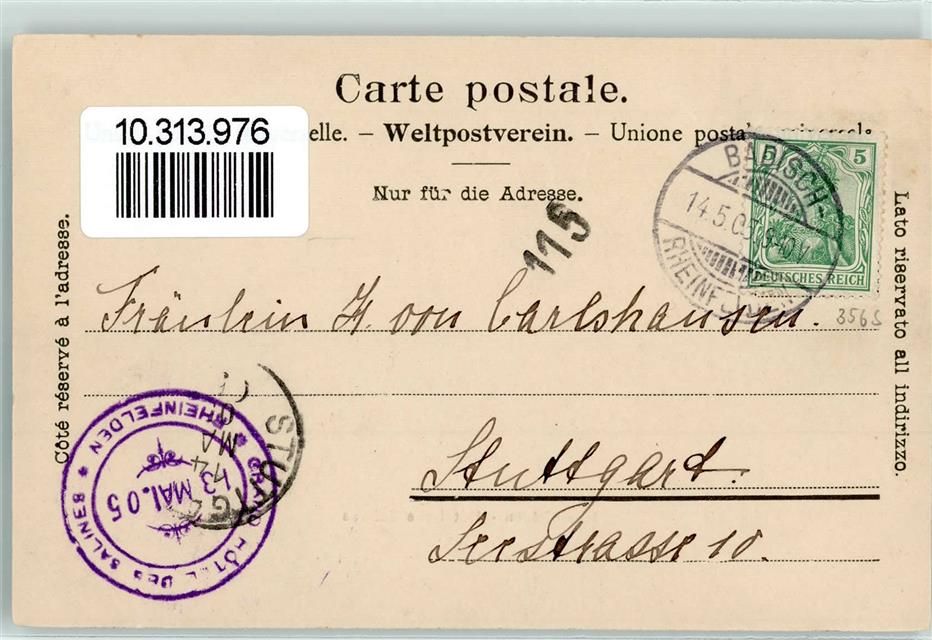 Carte postale.
10.313.976
elle. – Weltpostverein. – Unione postale universale
Nur für die Adresse.
115
BADISCH-
14.5.0 9-10V
RHEINFELDEN
5 5
DEUTSCHES REICH
3565
Côté réservé à l'adresse.
Lato riservato all indirizzo.
Fräulein H. von Carlshausen.
Stuttgart.
Seestrasse 10.
STUTTG
14
MA
GRAND HÔTEL DES SALINES * RHEINFELDEN *
13 MAI. 05